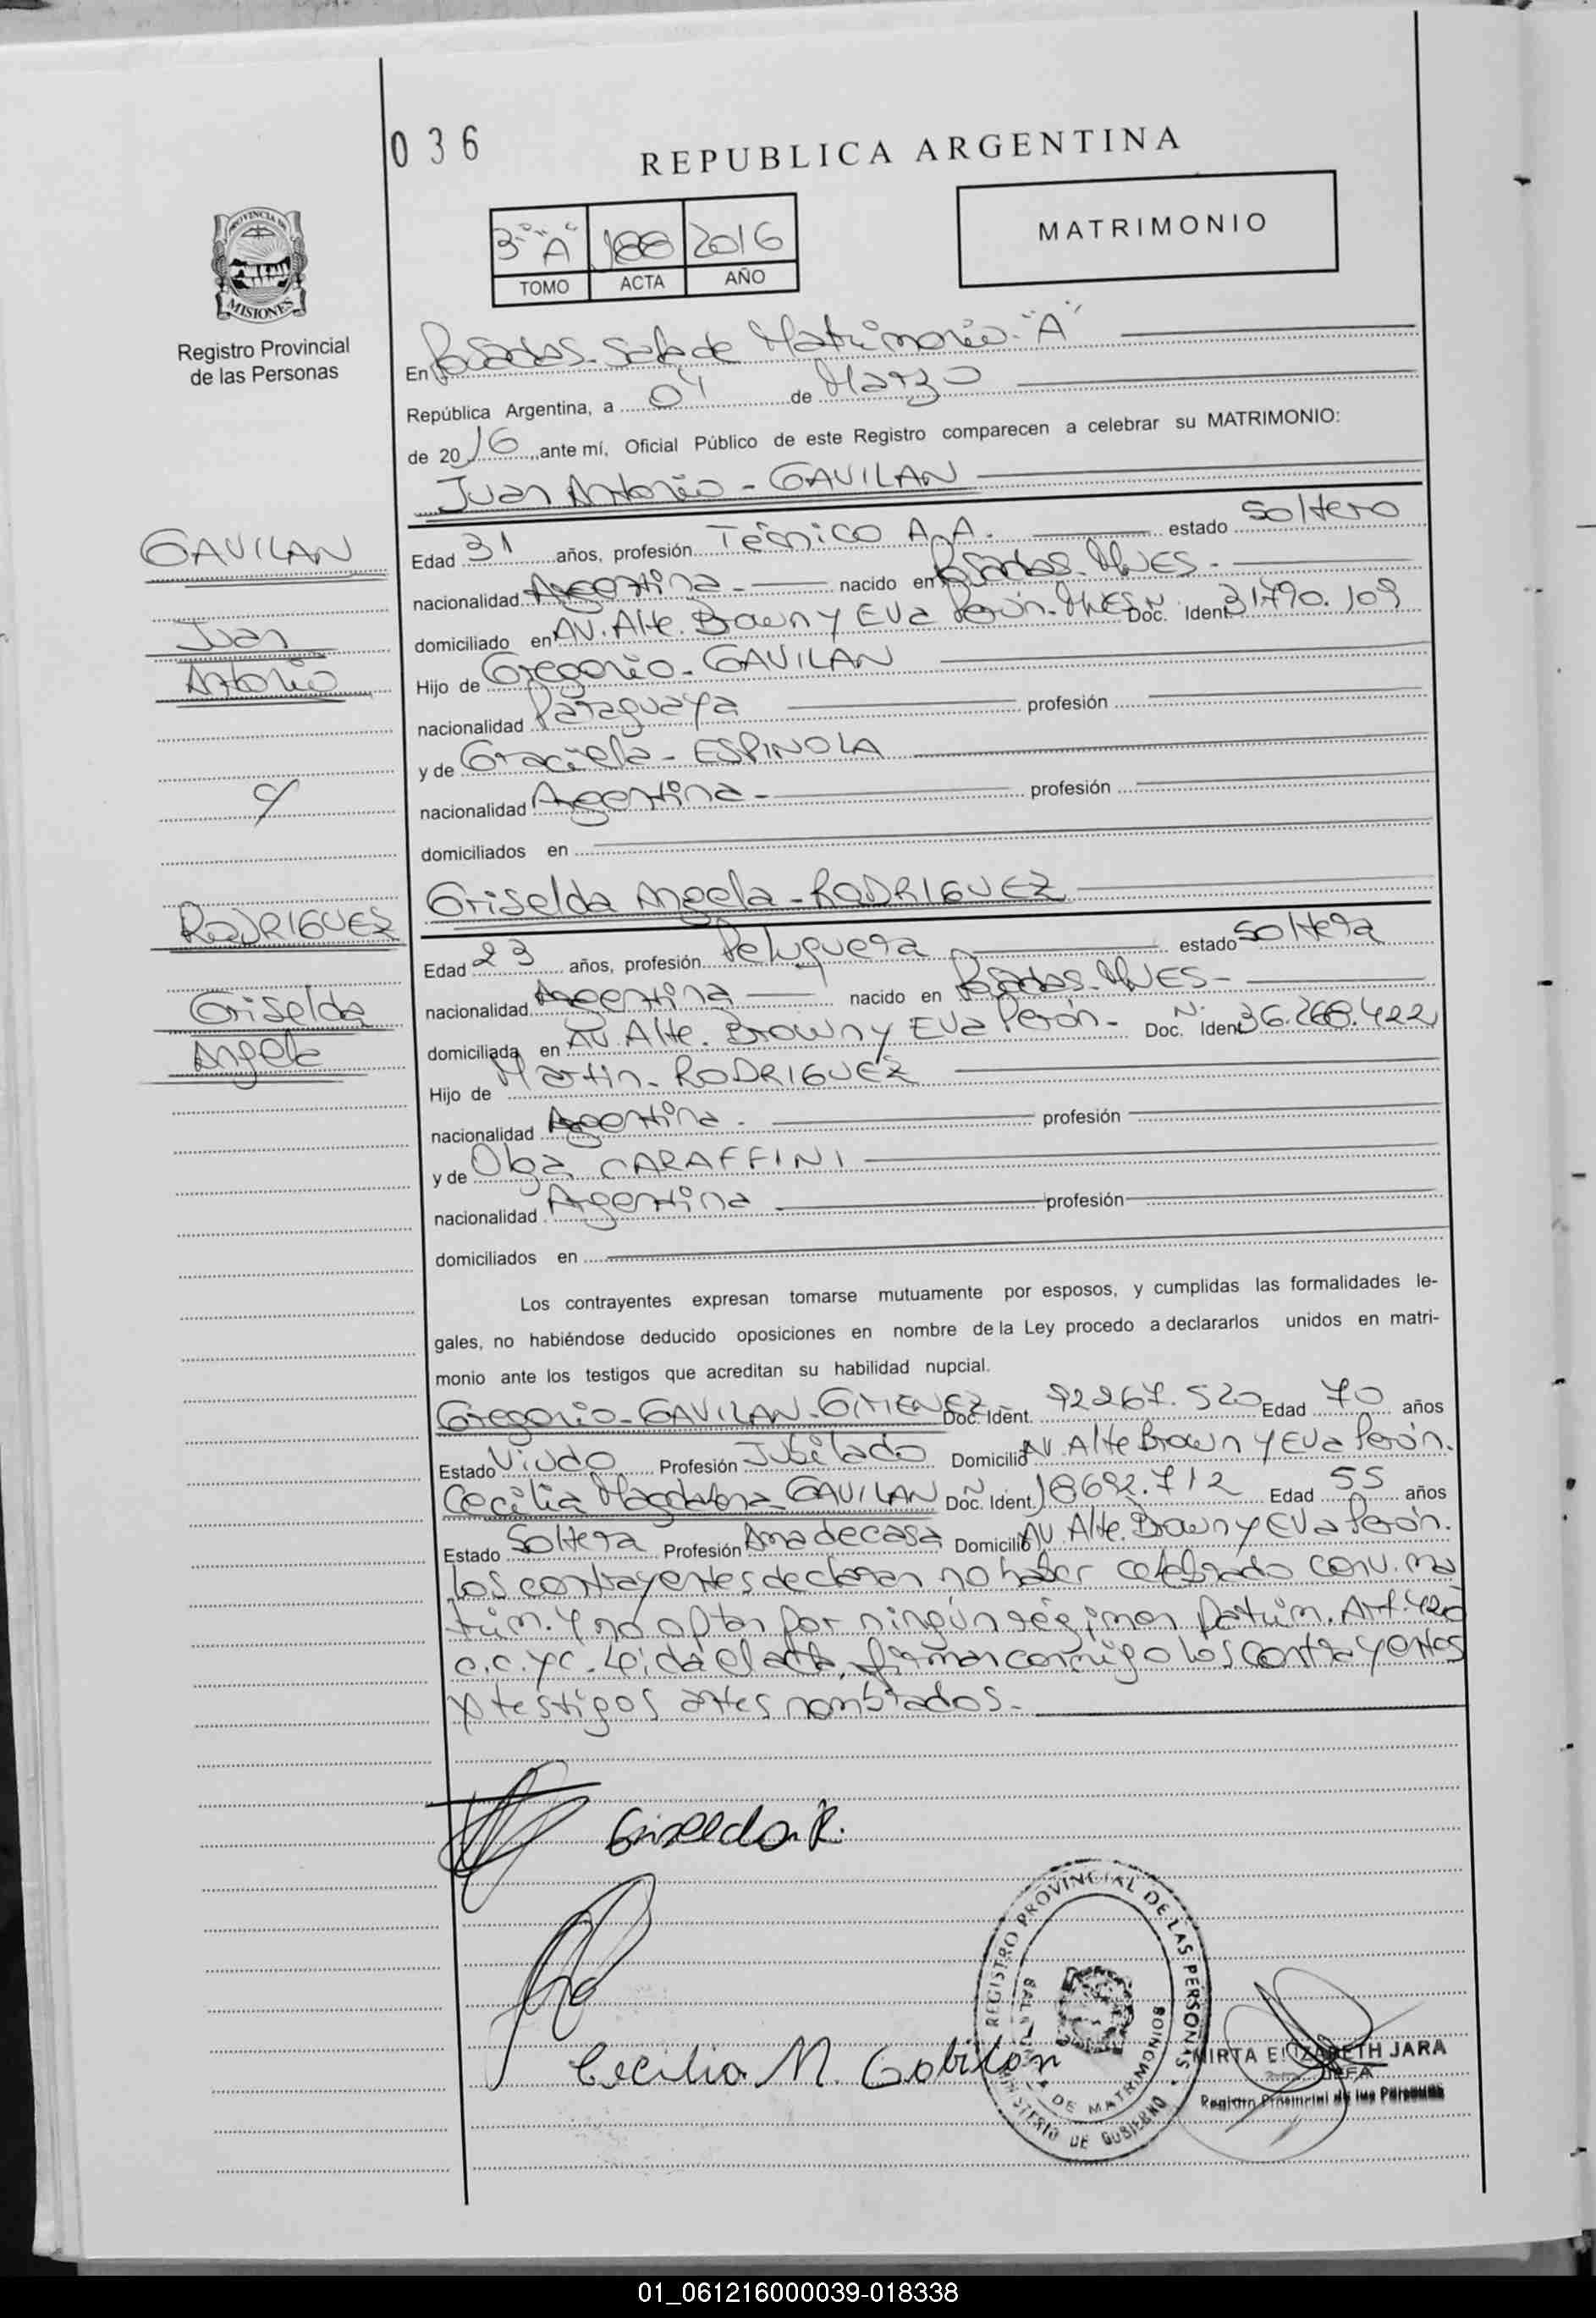 036
REPUBLICA ARGENTINA
PROVINCIA DE
MISIONES
Registro Provincial
de las Personas
3º "A" 188 2016
TOMO ACTA AÑO
MATRIMONIO
En Posadas - Sala de Matrimonio "A"
República Argentina, a 04 de Marzo
de 2016, ante mí, Oficial Público de este Registro comparecen a celebrar su MATRIMONIO:
Juan Antonio - GAVILAN
GAVILAN
Juan
Antonio
Edad 31 años, profesión Técnico A.A. estado Soltero
nacionalidad Argentina - nacido en Posadas - Mnes -
domiciliado en Av. Alte. Brown y Eva Perón - Mnes Doc. Ident. 31.490.109
Hijo de Gregorio - GAVILAN
nacionalidad Paraguaya profesión
y de Graciela - ESPINOLA
nacionalidad Argentina - profesión
domiciliados en
c/
Griselda Angela - RODRIGUEZ
RODRIGUEZ
Griselda
Angela
Edad 23 años, profesión Peluquera estado Soltera
nacionalidad Argentina - nacido en Posadas - Mnes -
domiciliada en Av. Alte. Brown y Eva Perón - Doc. Nº Ident. 36.268.422
Hijo de Martin - RODRIGUEZ
nacionalidad Argentina - profesión
y de Olga CARAFFINI
nacionalidad Argentina profesión
domiciliados en
Los contrayentes expresan tomarse mutuamente por esposos, y cumplidas las formalidades le-
gales, no habiéndose deducido oposiciones en nombre de la Ley procedo a declararlos unidos en matri-
monio ante los testigos que acreditan su habilidad nupcial.
Gregorio - GAVILAN - GIMENEZ Doc. Ident. 92267.520 Edad 70 años
Estado Viudo Profesión Jubilado Domicilio Av Alte Brown y Eva Perón.
Cecilia Magdalena GAVILAN Doc. Ident. 18692.712 Edad 55 años
Estado Soltera Profesión Ama de casa Domicilio Av. Alte. Brown y Eva Perón.
Los contrayentes declaran no haber celebrado conv. ma
trim. y no optar por ningún régimen patrim. Art. 420
C.C. y C. Leída el acta, firman conmigo los contrayentes
y testigos antes nombrados.-
Griselda R.
Cecilia M. Gabilan
REGISTRO PROVINCIAL DE LAS PERSONAS
SALA DE MATRIMONIOS
MINISTERIO DE GOBIERNO
MIRTA ELIZABETH JARA
JEFA
Registro Provincial de las Personas
01_061216000039-018338